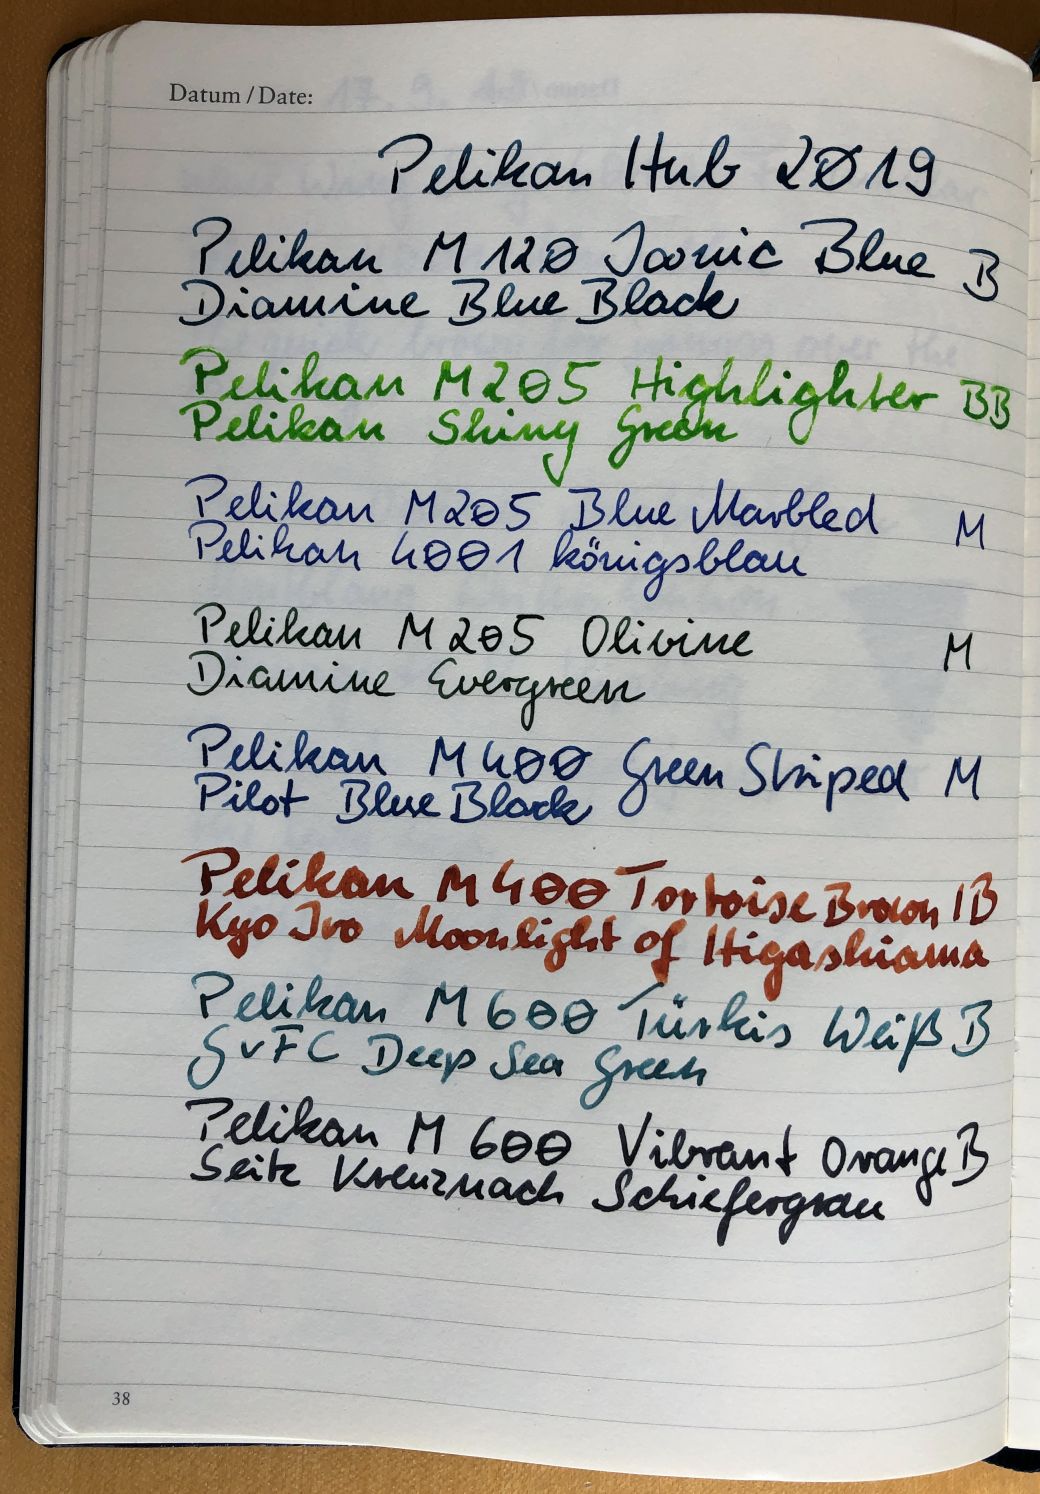 Datum / Date:
Pelikan Hub 2019
Pelikan M120 Iconic Blue B
Diamine Blue Black
Pelikan M205 Highlighter BB
Pelikan Shiny Green
Pelikan M205 Blue Marbled M
Pelikan 4001 königsblau
Pelikan M205 Olivine M
Diamine Evergreen
Pelikan M400 Green Striped M
Pilot Blue Black
Pelikan M400 Tortoise Brown IB
Kyo Iro Moonlight of Higashiama
Pelikan M600 Türkis Weiß B
GvFC Deep Sea Green
Pelikan M600 Vibrant Orange B
Seitz Kreuznach Schiefergrau
38